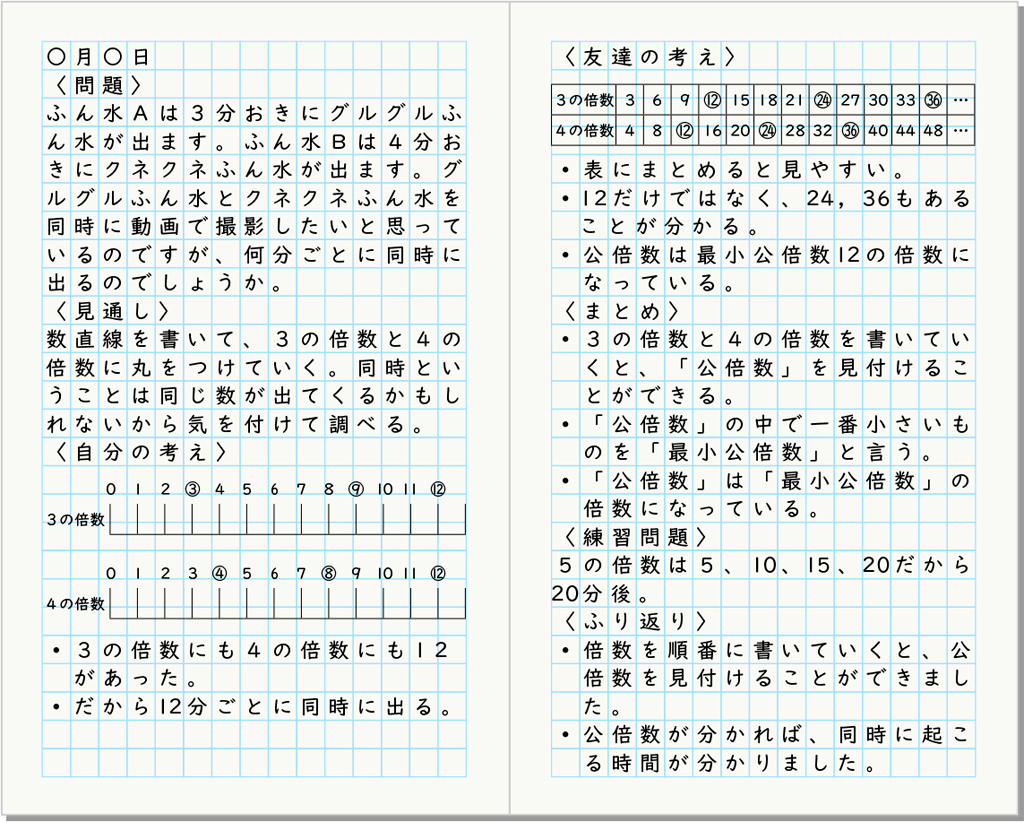 〇月〇日
〈問題〉
ふん水Aは3分おきにグルグルふ
ん水が出ます。ふん水Bは4分お
きにクネクネふん水が出ます。グ
ルグルふん水とクネクネふん水を
同時に動画で撮影したいと思って
いるのですが、何分ごとに同時に
出るのでしょうか。
〈見通し〉
数直線を書いて、3の倍数と4の
倍数に丸をつけていく。同時とい
うことは同じ数が出てくるかもし
れないから気を付けて調べる。
〈自分の考え〉
0 1 2 ③ 4 5 6 7 8 ⑨ 10 11 ⑫
3の倍数
0 1 2 3 ④ 5 6 7 ⑧ 9 10 11 ⑫
4の倍数
・3の倍数にも4の倍数にも12
があった。
・だから12分ごとに同時に出る。
〈友達の考え〉
3の倍数 3 6 9 ⑫ 15 18 21 ㉔ 27 30 33 ㊱ …
4の倍数 4 8 ⑫ 16 20 ㉔ 28 32 ㊱ 40 44 48 …
・表にまとめると見やすい。
・12だけではなく、24，36もある
ことが分かる。
・公倍数は最小公倍数12の倍数に
なっている。
〈まとめ〉
・3の倍数と4の倍数を書いてい
くと、「公倍数」を見付けるこ
とができる。
・「公倍数」の中で一番小さいも
のを「最小公倍数」と言う。
・「公倍数」は「最小公倍数」の
倍数になっている。
〈練習問題〉
5の倍数は5、10、15、20だから
20分後。
〈ふり返り〉
・倍数を順番に書いていくと、公
倍数を見付けることができまし
た。
・公倍数が分かれば、同時に起こ
る時間が分かりました。